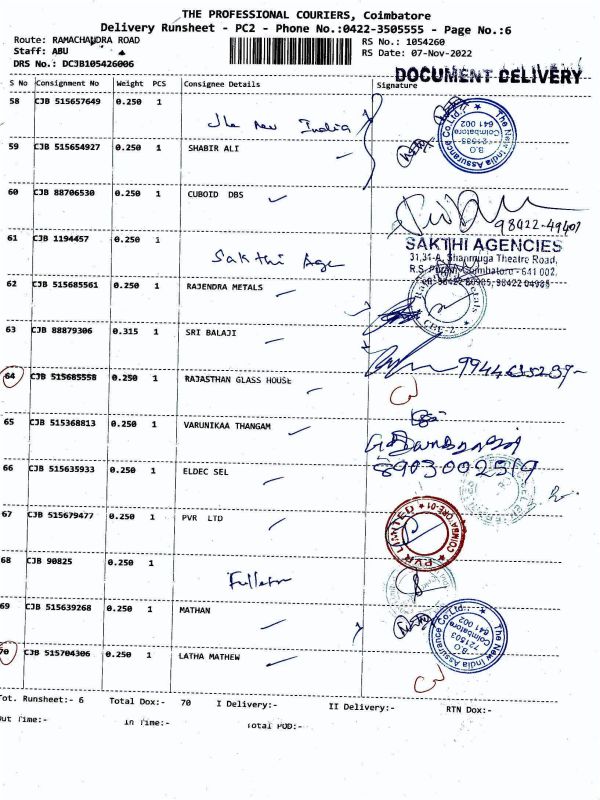 THE PROFESSIONAL COURIERS, Coimbatore
Delivery Runsheet - PC2 - Phone No.:0422-3505555 - Page No.:6
Route: RAMACHANDRA ROAD
RS No.: 1054260
Staff: ABU
RS Date: 07-Nov-2022
DRS No.: DC3B105426006
DOCUMENT DELIVERY
S No Consignment No Weight PCS Consignee Details Signature
58 CJB 515657649 0.250 1
The New India
The New India Assurance Co.Ltd.
B.O
Coimbatore
641 002
59 CJB 515654927 0.250 1 SHABIR ALI
60 CJB 88706530 0.250 1 CUBOID DBS
98422-49401
61 CJB 1194457 0.250 1
Sakthi Age
SAKTHI AGENCIES
31,31-A, Shanmuga Theatre Road,
Coimbatore - 641 002.
62 CJB 515685561 0.250 1 RAJENDRA METALS
CBE-2
63 CJB 88879306 0.315 1 SRI BALAJI
64 CJB 515685558 0.250 1 RAJASTHAN GLASS HOUSE
65 CJB 515368813 0.250 1 VARUNIKAA THANGAM
8903002519
66 CJB 515635933 0.250 1 ELDEC SEL
67 CJB 515679477 0.250 1 PVR LTD
PVR LIMITED
68 CJB 90825 0.250 1
69 CJB 515639268 0.250 1 MATHAN
The New India Assurance Co.Ltd.
721503
Coimbatore
641 002
70 CJB 515704306 0.250 1 LATHA MATHEW
Tot. Runsheet:- 6 Total Dox:- 70 I Delivery:- II Delivery:- RTN Dox:-
Out Time:- In Time:- Total POD:-